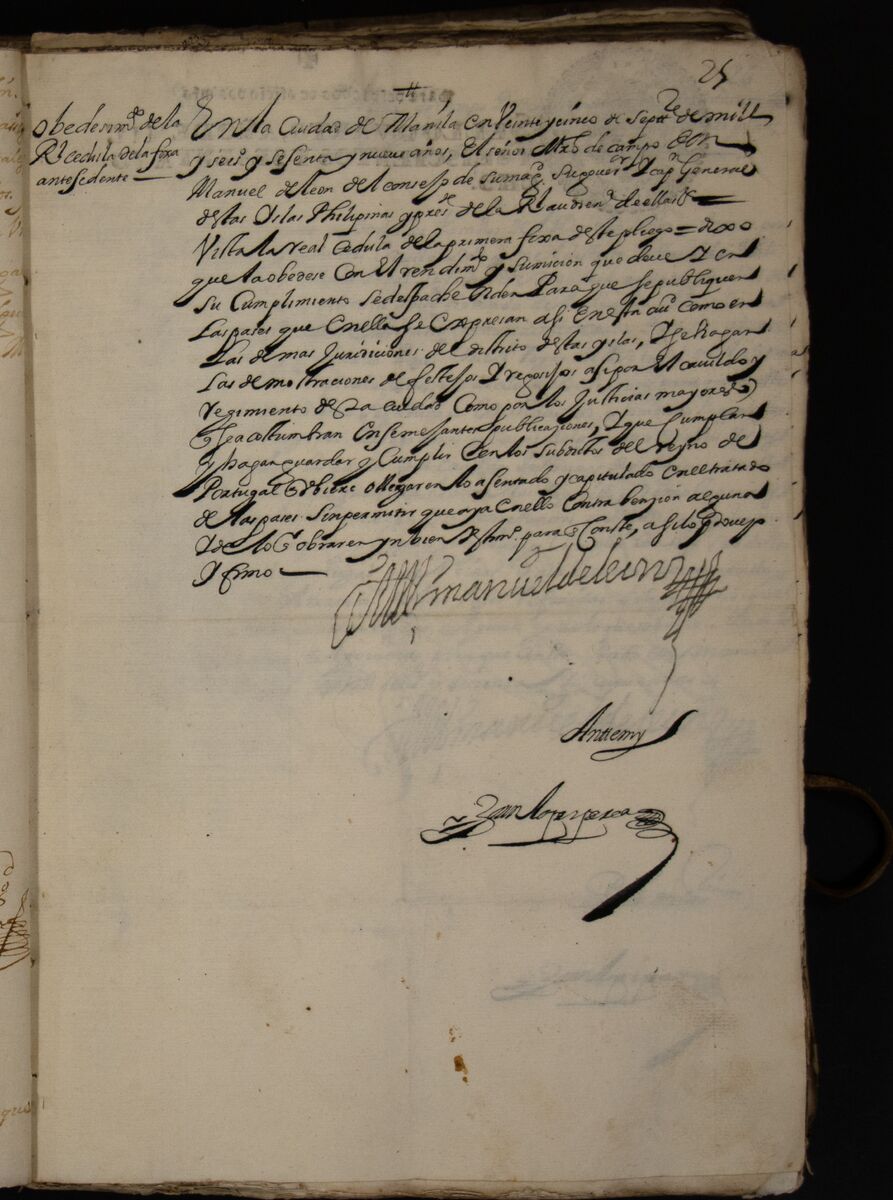 25
obedesim.to de la
R.l cedula de la foxa
antesedente
En la Ciudad de Manila en Veinte y cinco de Sept.re de mill
y seis.s y sesenta y nueve años, El señor Mro de campo Don
Manuel de leon del consejo de su mag.d su gover.or Y cap.n General
destas Yslas Philipinas y pres.te de la R.l audien.a de ellas &
Vista la real Cedula de la primera foxa deste pliego = dixo
que la obedese con el rendim.to y sumision que deve Y en
su Cumplimiento se despache orden Para que se publiquen
Las pases que en ella se expresan asi en esta ciu.d como en
Las demas Juridiciones del distrito destas yslas, Y se hagan
Las demostraciones de festejos Y regosijos asi por el cavildo y
regimiento desta ciudad Como por las Justicias mayores
q se acostumbran en semejantes publicaciones, Y que Cumplan
y hagan guardar y Cumplir Con los subditos del reyno de
Portugal q ubiere o llegaren lo asentado y capitulado en el tratado
de las pases sin permitir que aya en ello Contrabension alguna
Y de lo q obraren ynbien testim.o para q Conste, asi lo proveyo
Y firmo
Don Manuel de leon
Ante my
Juan lopez perea